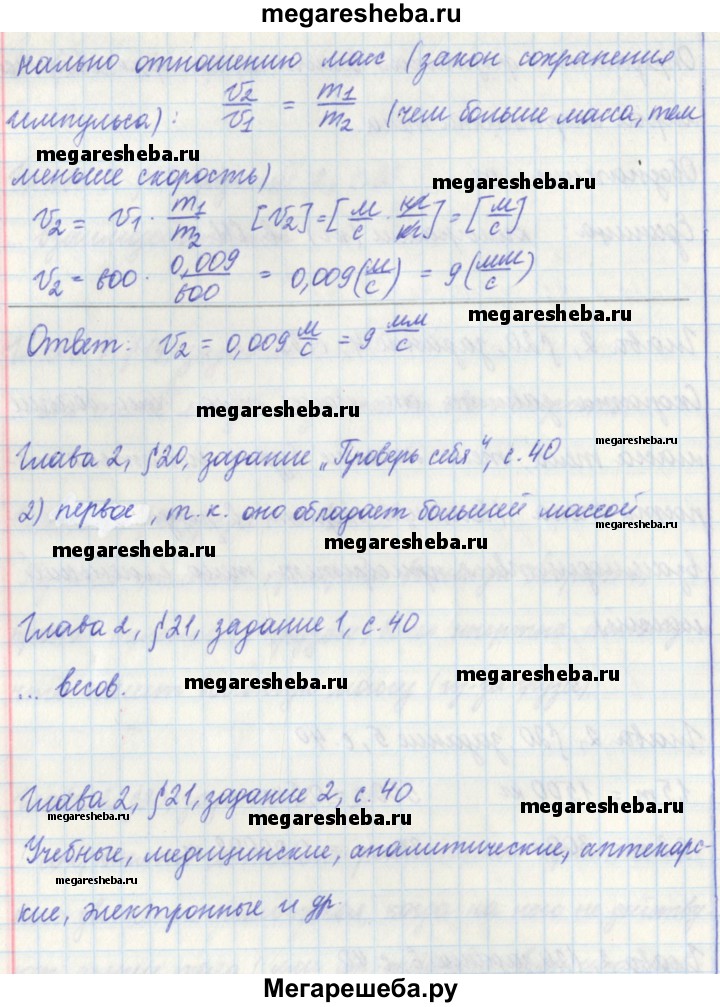 megaresheba.ru
нально отношению масс (закон сохранения
импульса): v2/v1 = m1/m2 (чем больше масса, тем
megaresheba.ru
меньше скорость)
megaresheba.ru
v2 = v1 · m1/m2 [v2] = [м/с · кг/кг] = [м/с]
v2 = 600 · 0,009/600 = 0,009 (м/с) = 9 (мм/с)
megaresheba.ru
Ответ: v2 = 0,009 м/с = 9 мм/с
megaresheba.ru
megaresheba.ru
Глава 2, §20, задание „Проверь себя", с. 40
2) первое, т. к. оно обладает большей массой
megaresheba.ru
megaresheba.ru
megaresheba.ru
Глава 2, §21, задание 1, с. 40
megaresheba.ru
megaresheba.ru
... весов.
Глава 2, §21, задание 2, с. 40
megaresheba.ru
megaresheba.ru
megaresheba.ru
Учебные, медицинские, аналитические, аптекарс-
megaresheba.ru
кие, электронные и др
Мегарешеба.ру